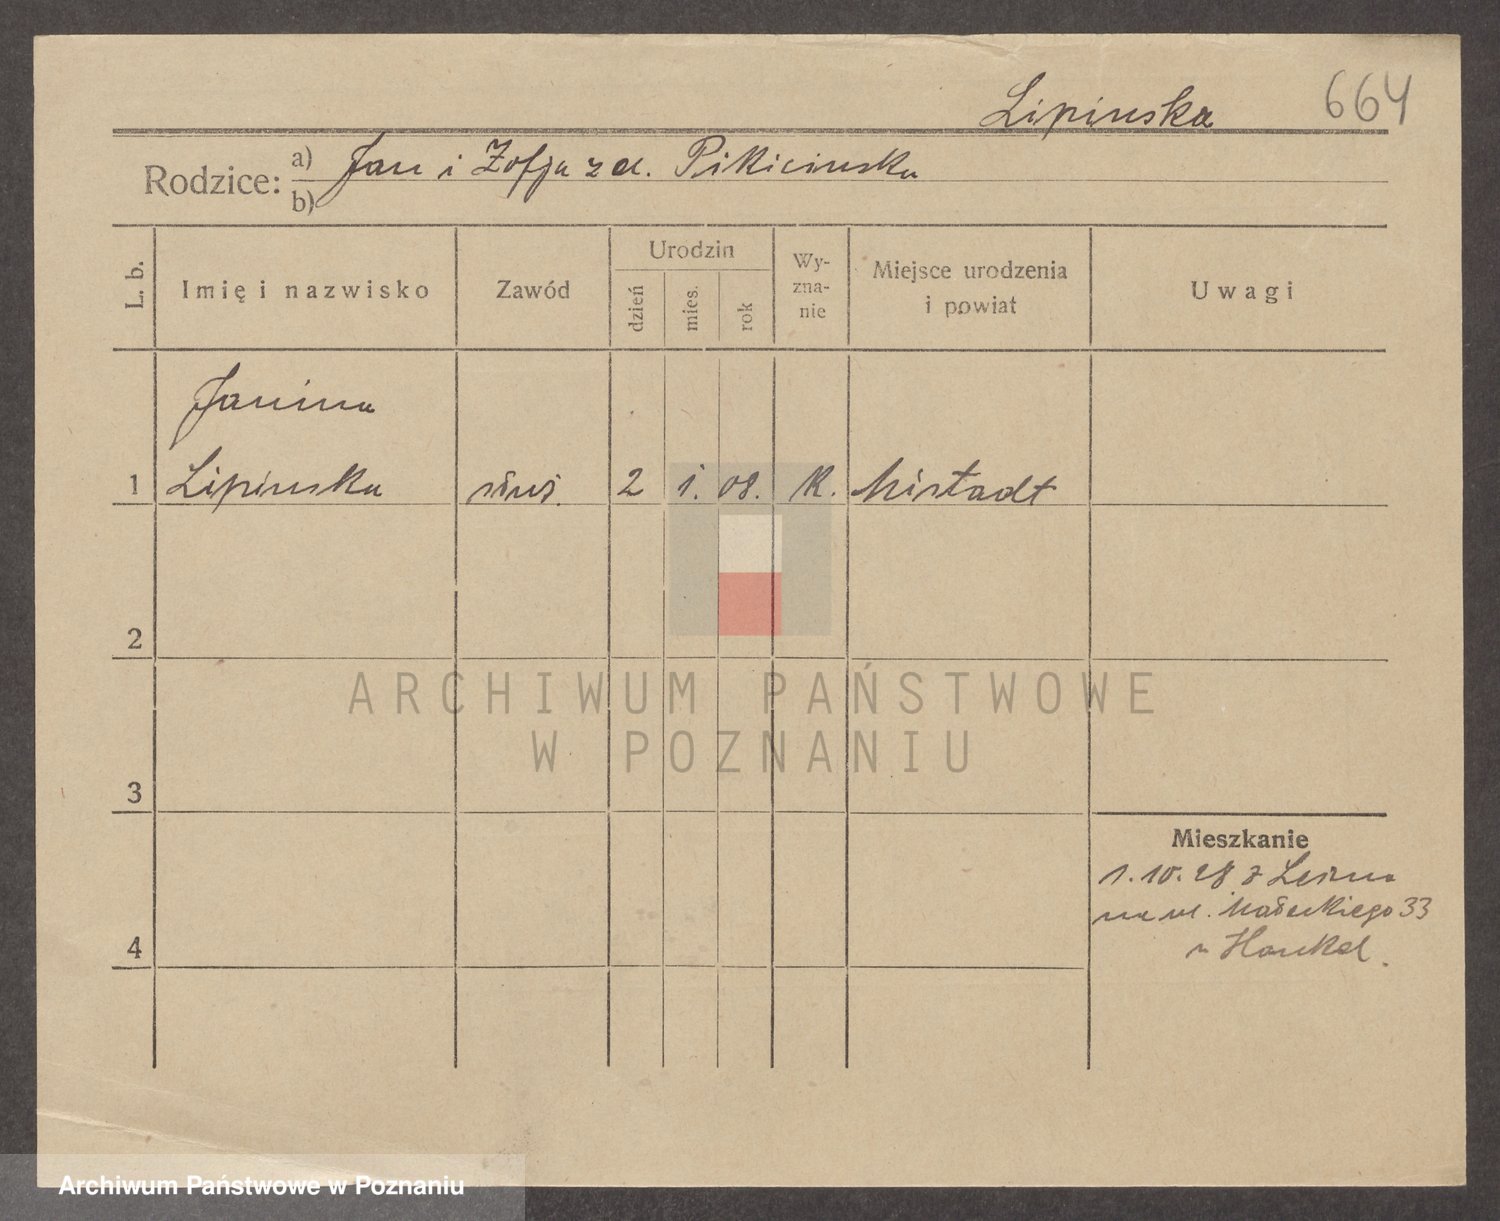 Lipinska 664
Rodzice: a) Jan i Zofja z d. Pikicinska
b)
L. b. Imię i nazwisko Zawód Urodzin dzień mies. rok Wy-zna-nie Miejsce urodzenia i powiat Uwagi
Janina
1 Lipinska służ. 2 1. 08. K. Mistadt
2
ARCHIWUM PAŃSTWOWE
W POZNANIU
3
Mieszkanie
1.10.28 z Leszna
na ul. Małeckiego 33
4 Hankel.
Archiwum Państwowe w Poznaniu